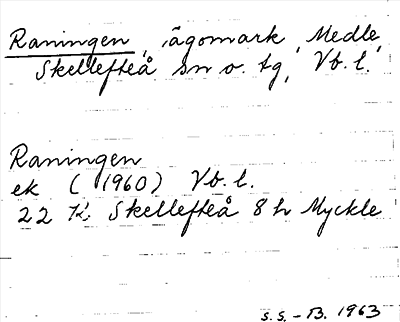 Raningen, ägomark, Medle,
Skellefteå sn o. tg, Vb. l.
Raningen
ek (1960) Vb. l.
22 K Skellefteå 8 h Myckle
S.S.-B. 1963